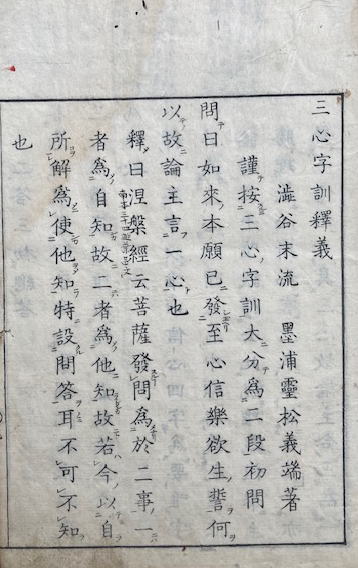 三心字訓釋義
澁谷末流　墨浦靈松義端著
謹按三心字訓大分為二段初問
問曰如來本願已發至心信樂欲生誓何
以故論主言一心也
釋曰涅槃經云菩薩發問為於二事一
者為自知故二者為他知故若今以自
所解為使他知特設問答耳不可不知
也